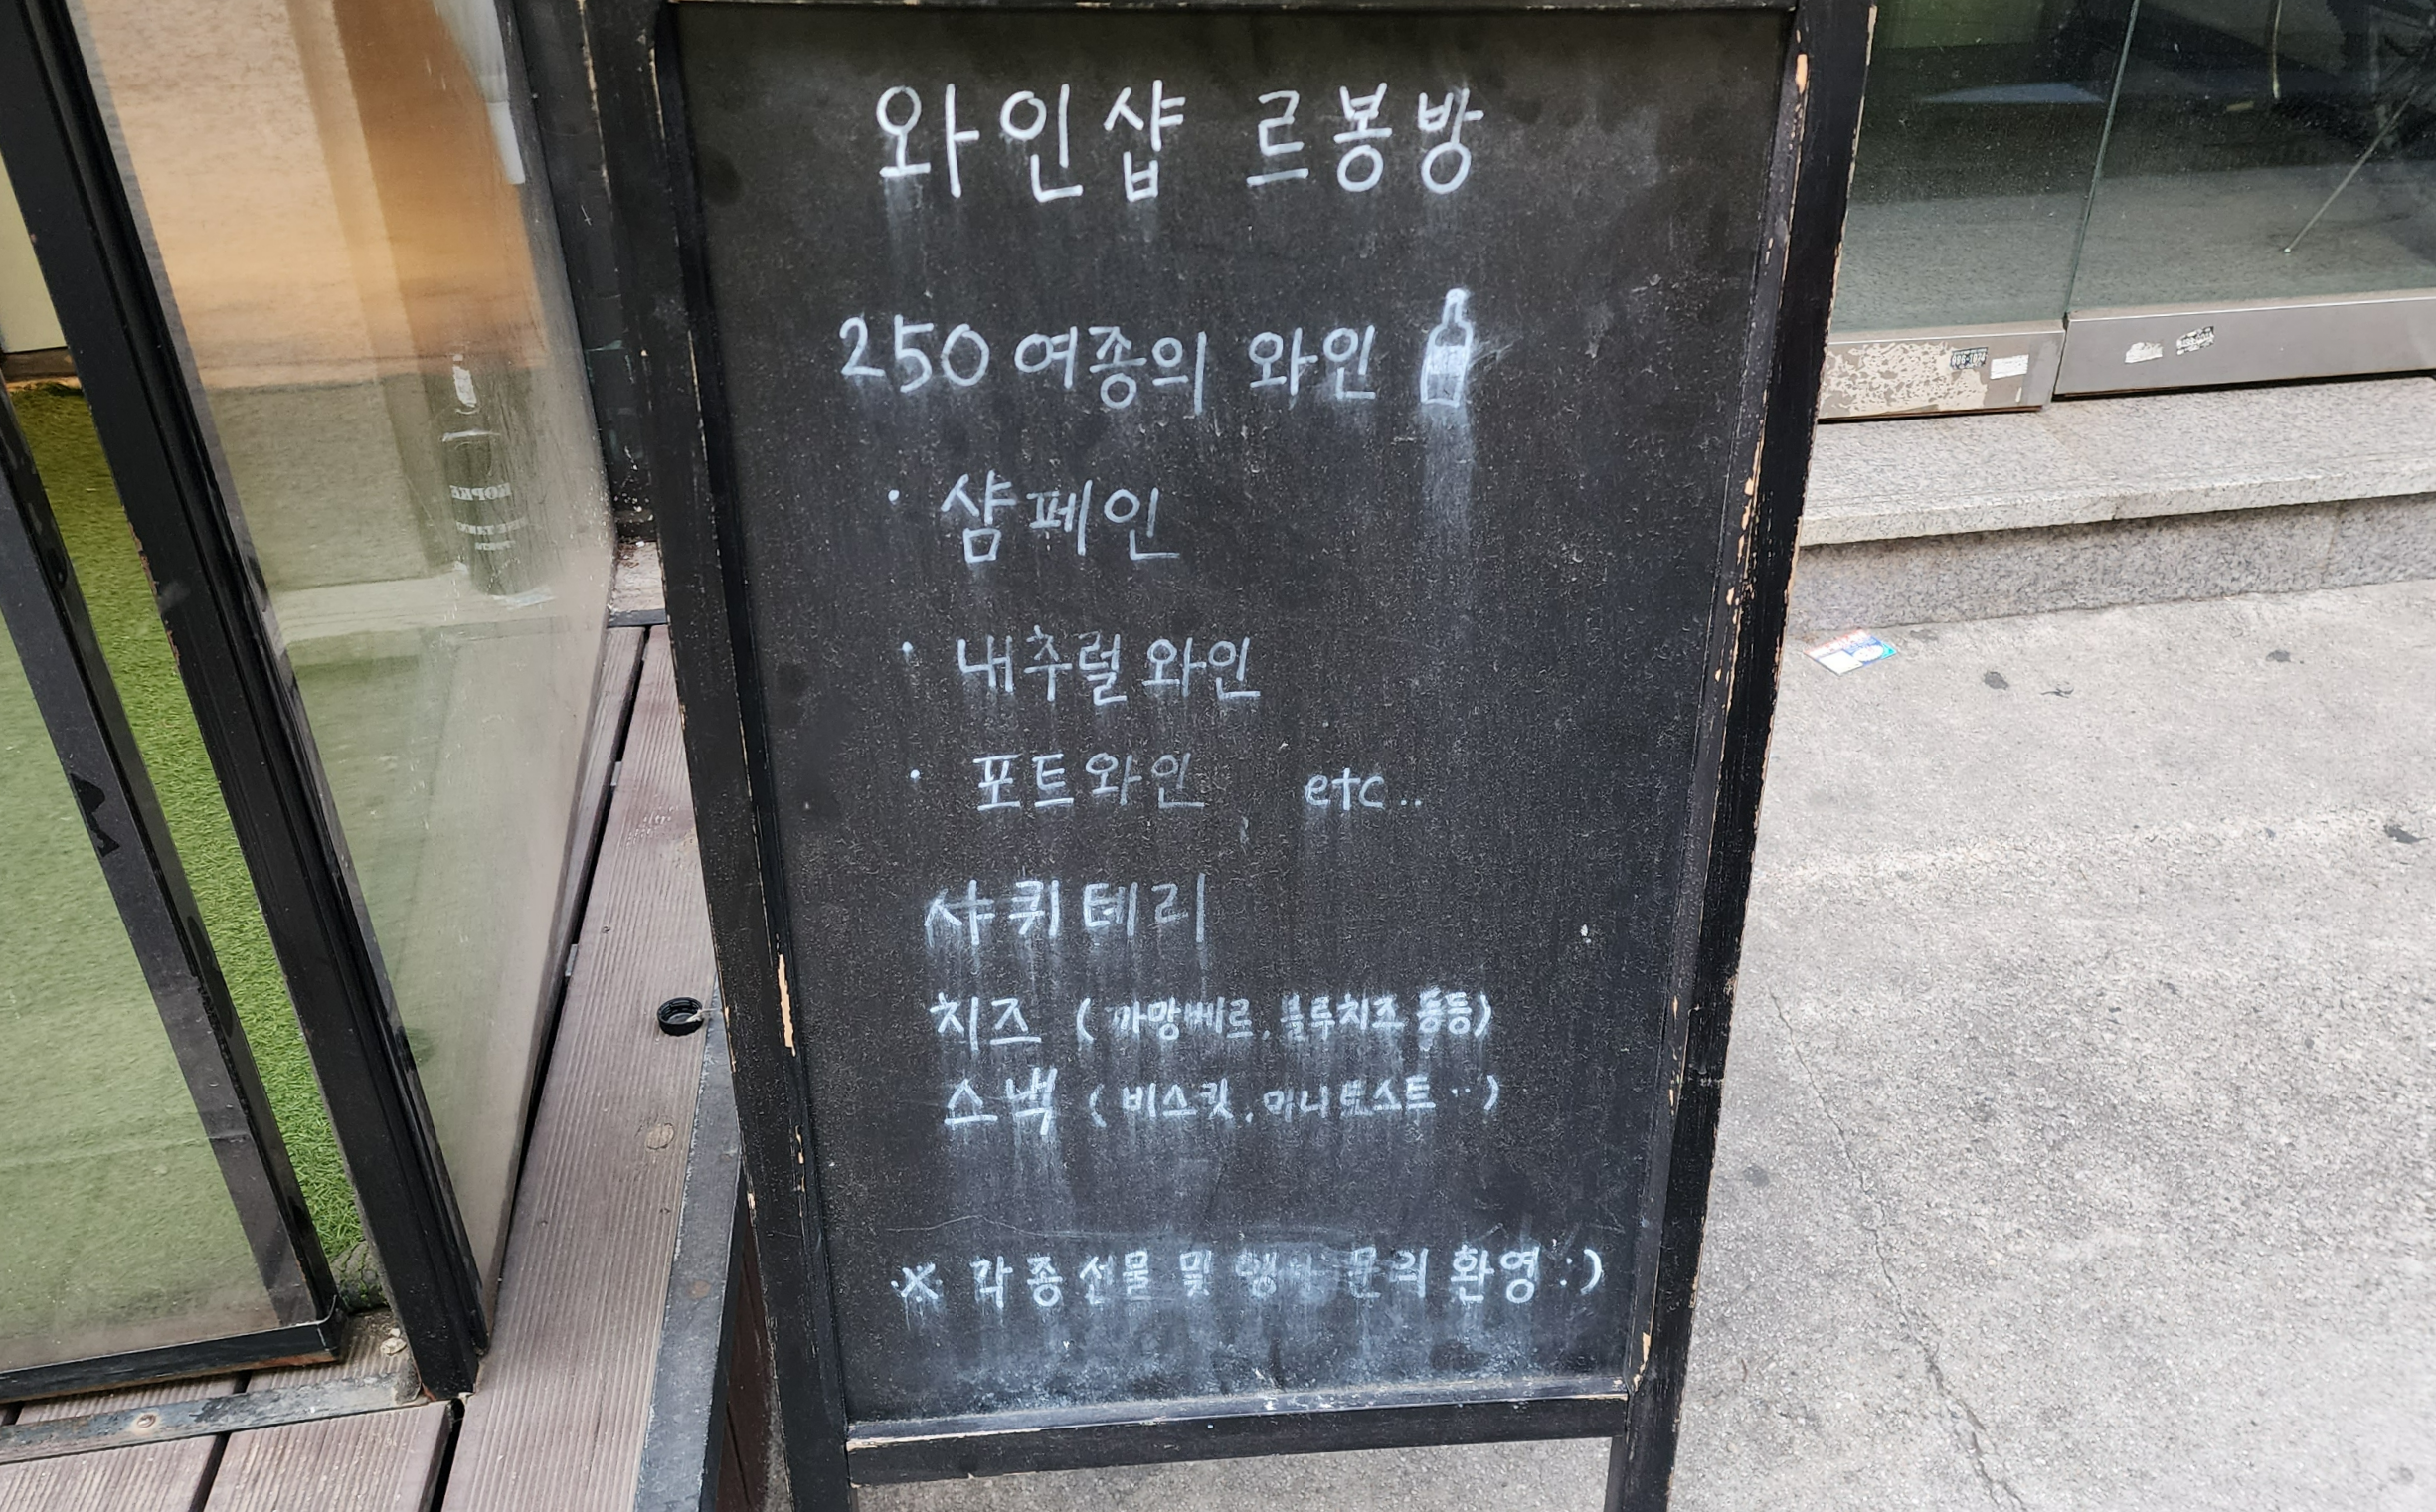 와인샵 르봉방
250여종의 와인
· 샴페인
· 내추럴와인
· 포트와인 etc..
샤퀴테리
치즈 (까망베르, 블루치즈 등등)
스낵 (비스킷, 미니토스트..)
※ 각종선물 및 행사 문의 환영 :)